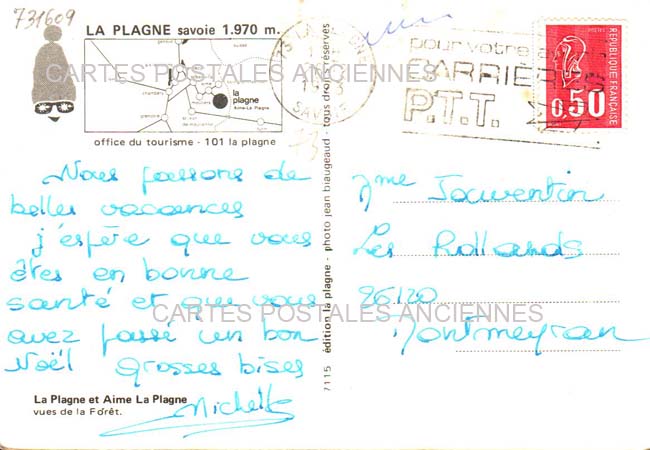 731609
LA PLAGNE savoie 1.970 m.
la plagne
Aime-La Plagne
office du tourisme - 101 la plagne
73 LA
SAVOIE
pour votre
CARRIERE
P.T.T.
POSTES
RÉPUBLIQUE FRANÇAISE
0,50
CARTES POSTALES ANCIENNES
Nous passons de
belles vacances
j'espère que vous
êtes en bonne
santé et que vous
avez passé un bon
Noël grosses bises
Michelle
La Plagne et Aime La Plagne
vues de la Forêt.
7115 édition la plagne - photo jean biaugeaud - tous droits réservés
Mme Jouventin
Les Rollands
26120
Montmeyran
CARTES POSTALES ANCIENNES